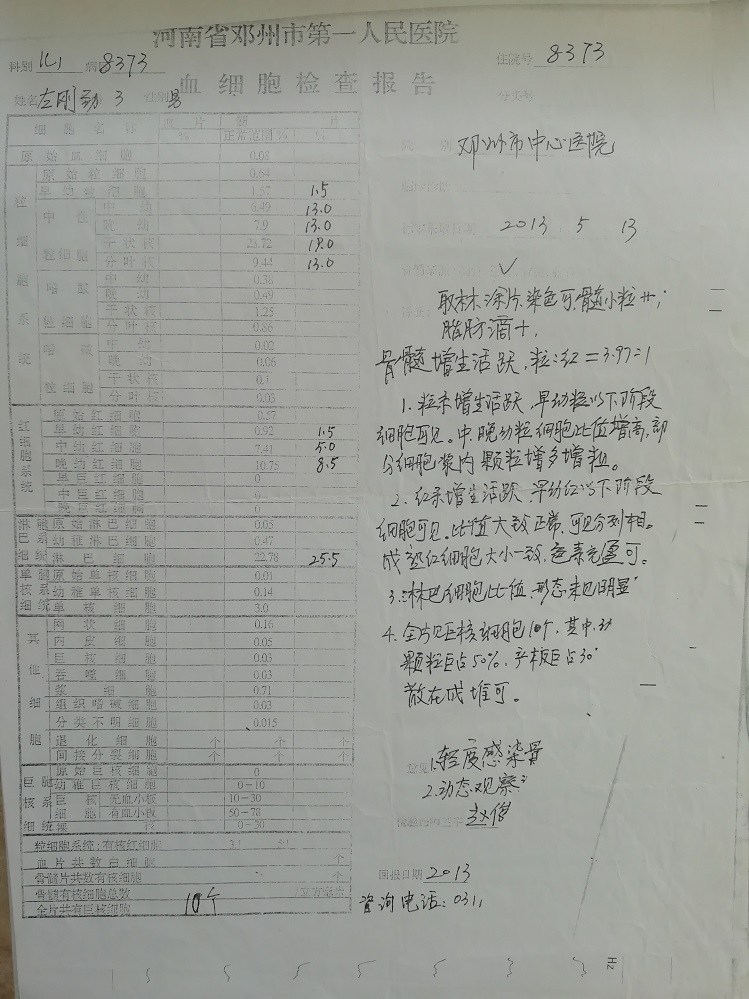 河南省邓州市第一人民医院
科别 儿1 病 8373 住院号 8373
血细胞检查报告
姓名 左刚劲 3 性别 男 分类号
细胞名称 血片 髓片
% 正常范围% %
原始血细胞 0.08
粒细胞系统
原始粒细胞 0.64
早幼粒细胞 1.57 1.5
中性粒细胞
中幼 6.49 13.0
晚幼 7.9 13.0
干状核 23.72 19.0
分叶核 9.44 13.0
嗜酸粒细胞
中幼 0.38
晚幼 0.49
干状核 1.25
分叶核 0.86
嗜碱粒细胞
中幼 0.02
晚幼 0.06
干状核 0.1
分叶核 0.03
红细胞系统
原始红细胞 0.57
早幼红细胞 0.92 1.5
中幼红细胞 7.41 5.0
晚幼红细胞 10.75 8.5
早巨红细胞 0
中巨红细胞 0
晚巨红细胞 0
淋巴系细胞统
原始淋巴细胞 0.05
幼稚淋巴细胞 0.47
淋巴细胞 22.78 25.5
单核细胞系统
原始单核细胞 0.01
幼稚单核细胞 0.14
单核细胞 3.0
其他细胞
网状细胞 0.16
内皮细胞 0.05
巨核细胞 0.03
吞噬细胞 0.03
浆细胞 0.71
组织嗜碱细胞 0.03
分类不明细胞 0.015
退化细胞 个 个 个
间接分裂细胞 个 个 个
巨核细胞系统
原始巨核细胞 0
幼稚巨核细胞 0-10
巨核细胞 无血小板 10-30
有血小板 50-78
裸核 0-30
粒细胞系统:有核红细胞 3:1 5:1
血片共数白细胞 个
骨髓片共数有核细胞 个
骨髓有核细胞总数 /立方毫米
全片共有巨核细胞 10个
邓州市中心医院
2013 . 5 13
✓
取材、涂片、染色可,髓小粒++;
脂肪滴+,
骨髓增生活跃,粒:红=3.97:1
1. 粒系增生活跃,早幼粒以下阶段
细胞可见。中、晚幼粒细胞比值增高,部
分细胞浆内颗粒增多增粗。
2. 红系增生活跃,早幼红以下阶段
细胞可见。比值大致正常,可见分裂相。
成熟红细胞大小一致,色素充盈可。
3. 淋巴细胞比值、形态未见明显
4. 全片见巨核细胞10个,其中
颗粒巨占50%,产板巨占30
散在成堆可。
意见 1.轻度感染骨
2.动态观察
回报日期 2013
咨询电话:0311
Hz